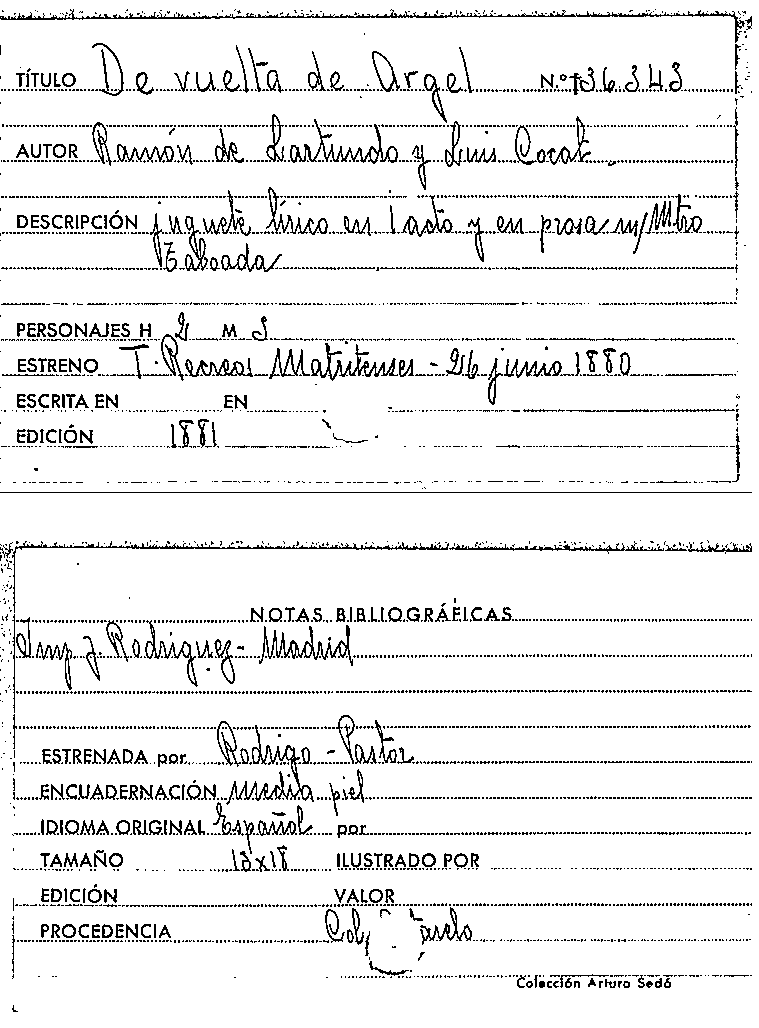 TÍTULO De vuelta de Argel N.º 36.343
AUTOR Ramón de Lartundo y Luis Cocat
DESCRIPCIÓN juguete lírico en 1 acto y en prosa m/ Mtro
Taboada
PERSONAJES H 2 M 3
ESTRENO T. Recreos Matritenses - 26 junio 1880
ESCRITA EN EN
EDICIÓN 1881
NOTAS BIBLIOGRÁFICAS
Imp J. Rodríguez - Madrid
ESTRENADA por Rodrigo - Pastor
ENCUADERNACIÓN Media piel
IDIOMA ORIGINAL Español por
TAMAÑO 13x18 ILUSTRADO POR
EDICIÓN VALOR
PROCEDENCIA Col
Colección Arturo Sedó